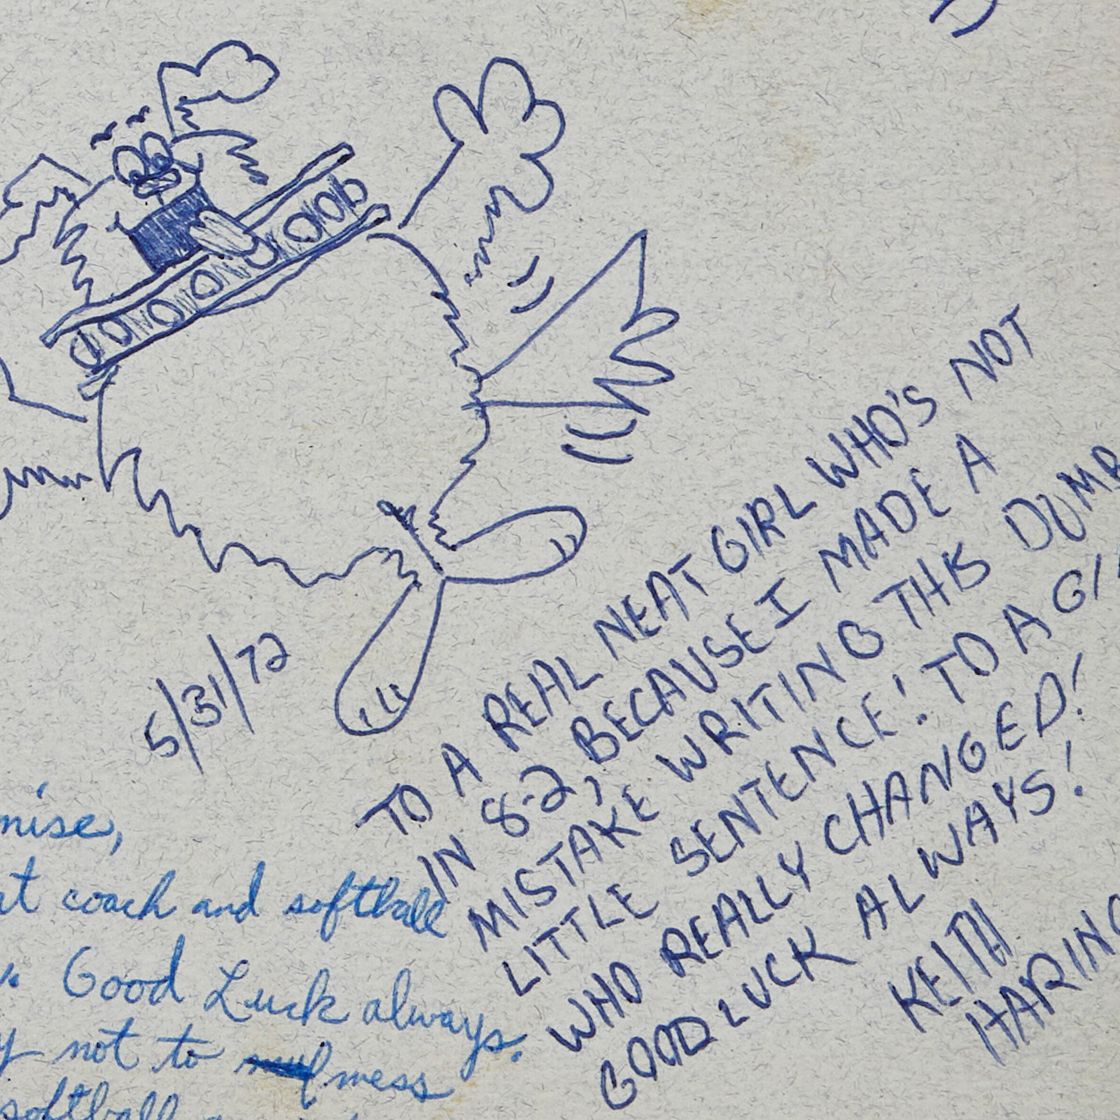 5/31/72
TO A REAL NEAT GIRL WHO'S NOT
IN 8-2, BECAUSE I MADE A
MISTAKE WRITING THIS DUMB
LITTLE SENTENCE! TO A
WHO REALLY CHANGED!
GOOD LUCK ALWAYS!
KEITH
HARING
coach and softball
Good Luck always.
not to mess
softball